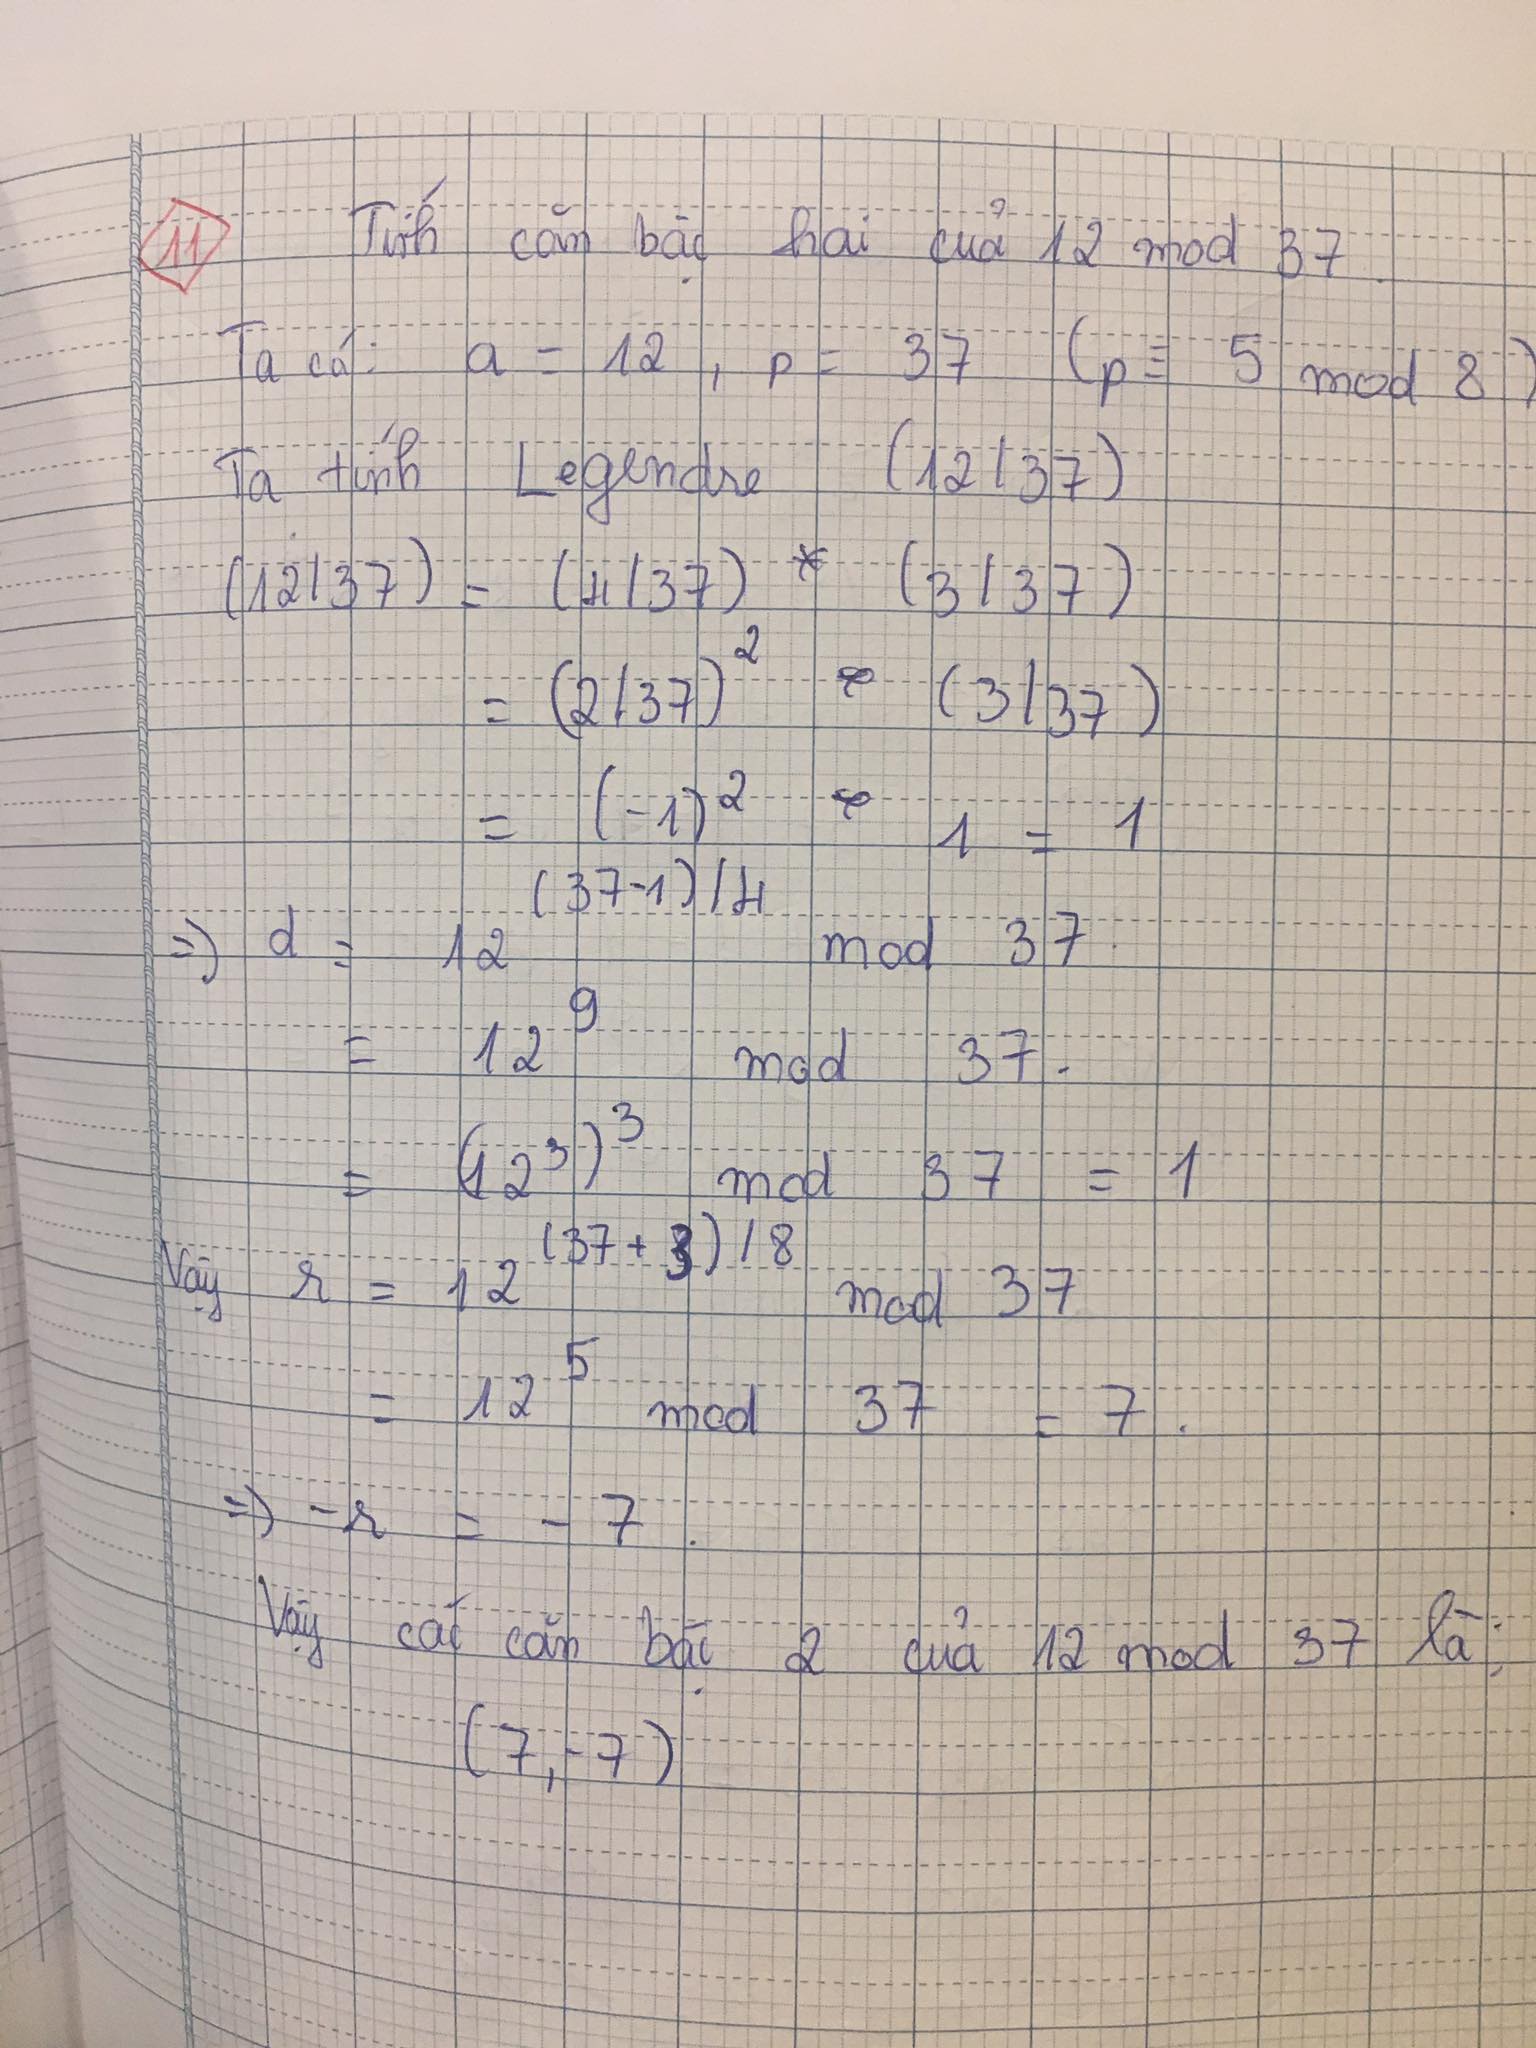 11 Tính căn bậc hai của 12 mod 37.
Ta có: a = 12, p = 37 (p ≡ 5 mod 8)
Ta tính Legendre (12/37)
(12/37) = (4/37) * (3/37)
= (2/37)² * (3/37)
= (-1)² * 1 = 1
=> d = 12^(37-1)/4 mod 37.
= 12⁹ mod 37.
= (12³)³ mod 37 = 1
Vậy r = 12^(37+3)/8 mod 37
= 12⁵ mod 37 = 7.
=> -r = -7.
Vậy các căn bậc 2 của 12 mod 37 là:
(7,-7)